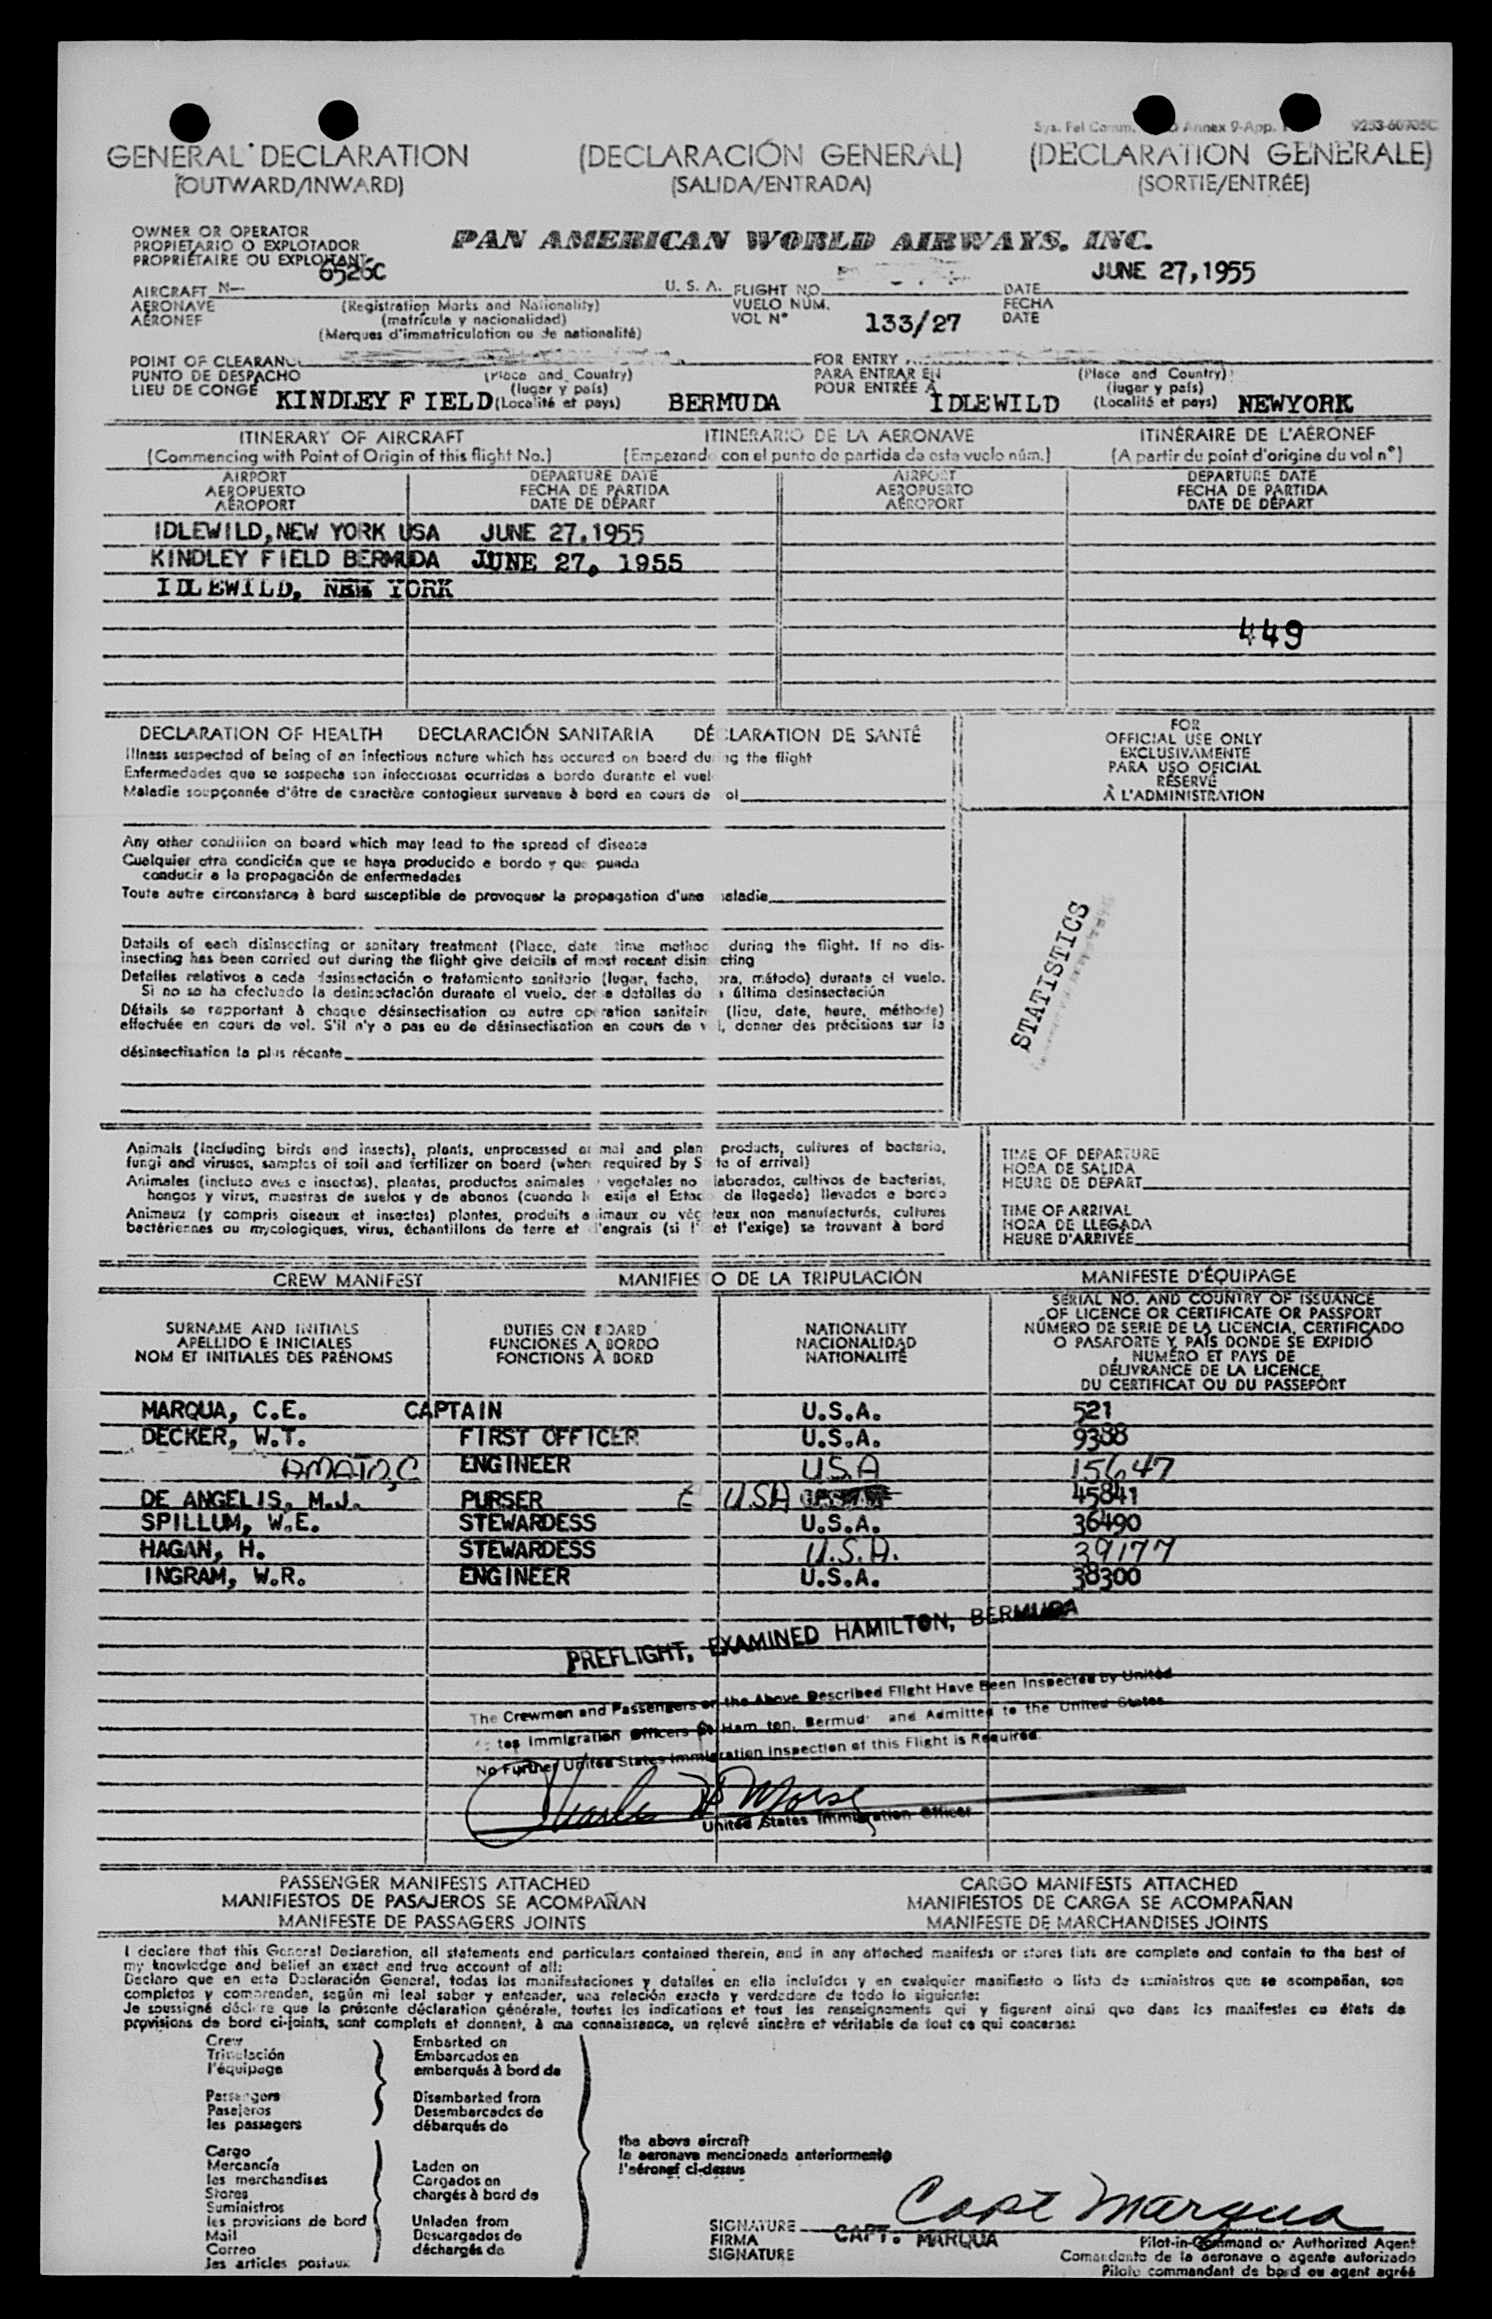 Sys. Fel Comm. Annex 9-App. 9253-60705C
GENERAL DECLARATION (DECLARACIÓN GENERAL) (DECLARATION GENERALE)
(OUTWARD/INWARD) (SALIDA/ENTRADA) (SORTIE/ENTRÉE)
OWNER OR OPERATOR
PROPIETARIO O EXPLOTADOR
PROPRIÉTAIRE OU EXPLOITANT
PAN AMERICAN WORLD AIRWAYS, INC.
AIRCRAFT N- 6526C U. S. A. FLIGHT NO. DATE JUNE 27,1955
AERONAVE (Registration Marks and Nationality) VUELO NÚM. FECHA
AÉRONEF (matrícula y nacionalidad) VOL N° 133/27 DATE
(Marques d'immatriculation ou de nationalité)
POINT OF CLEARANCE FOR ENTRY
PUNTO DE DESPACHO (Place and Country) PARA ENTRAR EN (Place and Country)
LIEU DE CONGÉ (lugar y país) POUR ENTRÉE À (lugar y país)
KINDLEY FIELD (Localité et pays) BERMUDA IDLEWILD (Localité et pays) NEWYORK
ITINERARY OF AIRCRAFT ITINERARIO DE LA AERONAVE ITINÉRAIRE DE L'AÉRONEF
(Commencing with Point of Origin of this flight No.) (Empezando con el punto de partida de este vuelo núm.) (A partir du point d'origine du vol n°)
AIRPORT DEPARTURE DATE AIRPORT DEPARTURE DATE
AEROPUERTO FECHA DE PARTIDA AEROPUERTO FECHA DE PARTIDA
AÉROPORT DATE DE DÉPART AÉROPORT DATE DE DÉPART
IDLEWILD,NEW YORK USA JUNE 27,1955
KINDLEY FIELD BERMUDA JUNE 27, 1955
IDLEWILD, NEW YORK
449
DECLARATION OF HEALTH DECLARACIÓN SANITARIA DÉCLARATION DE SANTÉ
Illness suspected of being of an infectious nature which has occured on board during the flight
Enfermedades que se sospecha son infecciosas ocurridas a bordo durante el vuel
Maladie soupçonnée d'être de caractère contagieux survenue à bord en cours de ol
Any other condition on board which may lead to the spread of disease
Cualquier otra condición que se haya producido a bordo y que pueda
conducir a la propagación de enfermedades
Toute autre circonstance à bord susceptible de provoquer la propagation d'une maladie
Details of each disinsecting or sanitary treatment (Place, date time method during the flight. If no dis-
insecting has been carried out during the flight give details of most recent disinsecting
Detalles relativos a cada desinsectación o tratamiento sanitario (lugar, fecha, hora, método) durante el vuelo.
Si no se ha efectuado la desinsectación durante el vuelo, dense detalles de la última desinsectación
Détails se rapportant à chaque désinsectisation ou autre opération sanitaire (lieu, date, heure, méthode)
effectuée en cours de vol. S'il n'y a pas eu de désinsectisation en cours de vol, donner des précisions sur la
désinsectisation la plus récente
FOR
OFFICIAL USE ONLY
EXCLUSIVAMENTE
PARA USO OFICIAL
RÉSERVÉ
À L'ADMINISTRATION
STATISTICS
Animals (including birds and insects), plants, unprocessed animal and plant products, cultures of bacteria,
fungi and viruses, samples of soil and fertilizer on board (when required by State of arrival)
Animales (incluso aves e insectos), plantas, productos animales y vegetales no elaborados, cultivos de bacterias,
hongos y virus, muestras de suelos y de abonos (cuando lo exija el Estado de llegada) llevados a bordo
Animaux (y compris oiseaux et insectes) plantes, produits animaux ou végétaux non manufacturés, cultures
bactériennes ou mycologiques, virus, échantillons de terre et d'engrais (si l'état l'exige) se trouvant à bord
TIME OF DEPARTURE
HORA DE SALIDA
HEURE DE DÉPART
TIME OF ARRIVAL
HORA DE LLEGADA
HEURE D'ARRIVÉE
CREW MANIFEST MANIFIESTO DE LA TRIPULACIÓN MANIFESTE D'ÉQUIPAGE
SURNAME AND INITIALS
APELLIDO E INICIALES
NOM ET INITIALES DES PRÉNOMS
DUTIES ON BOARD
FUNCIONES A BORDO
FONCTIONS À BORD
NATIONALITY
NACIONALIDAD
NATIONALITÉ
SERIAL NO. AND COUNTRY OF ISSUANCE
OF LICENCE OR CERTIFICATE OR PASSPORT
NÚMERO DE SERIE DE LA LICENCIA, CERTIFICADO
O PASAPORTE Y PAÍS DONDE SE EXPIDIÓ
NUMÉRO ET PAYS DE
DÉLIVRANCE DE LA LICENCE,
DU CERTIFICAT OU DU PASSEPORT
MARQUA, C.E. CAPTAIN U.S.A. 521
DECKER, W.T. FIRST OFFICER U.S.A. 9388
AMATO, C ENGINEER USA 15647
DE ANGELIS, M.J. PURSER USA 45841
SPILLUM, W.E. STEWARDESS U.S.A. 36490
HAGAN, H. STEWARDESS U.S.A. 39177
INGRAM, W.R. ENGINEER U.S.A. 38300
PREFLIGHT, EXAMINED HAMILTON, BERMUDA
The Crewmen and Passengers on the Above Described Flight Have Been Inspected by United
tes Immigration Officers at Ham ton, Bermud and Admitted to the United States
No Further United States Immigration Inspection of this Flight is Required.
Charles D Morse
United States Immigration Officer
PASSENGER MANIFESTS ATTACHED CARGO MANIFESTS ATTACHED
MANIFIESTOS DE PASAJEROS SE ACOMPAÑAN MANIFIESTOS DE CARGA SE ACOMPAÑAN
MANIFESTE DE PASSAGERS JOINTS MANIFESTE DE MARCHANDISES JOINTS
I declare that this General Declaration, all statements and particulars contained therein, and in any attached manifests or stores lists are complete and contain to the best of
my knowledge and belief an exact and true account of all:
Declaro que en esta Declaración General, todas las manifestaciones y detalles en ella incluidos y en cualquier manifiesto o lista de suministros que se acompañan, son
completos y comprenden, según mi leal saber y entender, una relación exacta y verdadera de todo lo siguiente:
Je soussigné déclare que la présente déclaration générale, toutes les indications et tous les renseignements qui y figurent ainsi que dans les manifestes ou états de
provisions de bord ci-joints, sont complets et donnent, à ma connaissance, un relevé sincère et véritable de tout ce qui concerne:
Crew Embarked on
Tripulación Embarcados en
l'équipage embarqués à bord de
Passengers Disembarked from
Pasajeros Desembarcados de
les passagers débarqués de
the above aircraft
la aeronave mencionada anteriormente
l'aéronef ci-dessus
Cargo
Mercancía Laden on
les marchandises Cargados en
Stores chargés à bord de
Suministros
les provisions de bord Unladen from
Mail Descargados de
Correo déchargés de
les articles postaux
Capt Marqua
SIGNATURE
FIRMA CAPT. MARQUA
SIGNATURE
Pilot-in-Command or Authorized Agent
Comandante de la aeronave o agente autorizado
Pilote commandant de bord ou agent agréé